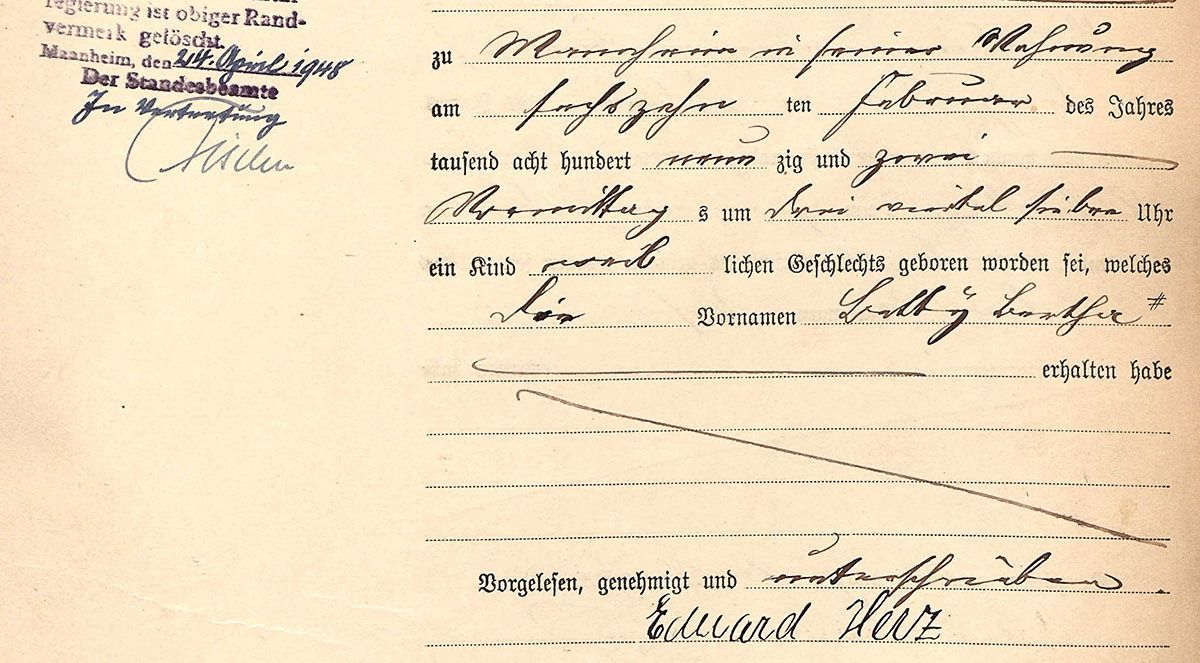 regierung ist obiger Rand-
vermerk gelöscht.
Mannheim, den 24. April 1948
Der Standesbeamte
In Vertretung
zu Mannheim in seiner Wohnung
am sechszehn ten Februar des Jahres
tausend acht hundert neun zig und zwei
Vormittag s um drei viertel sieben Uhr
ein Kind weib lichen Geschlechts geboren worden sei, welches
die Vornamen Betty Bertha #
erhalten habe
Vorgelesen, genehmigt und unterschrieben
Eduard Herz